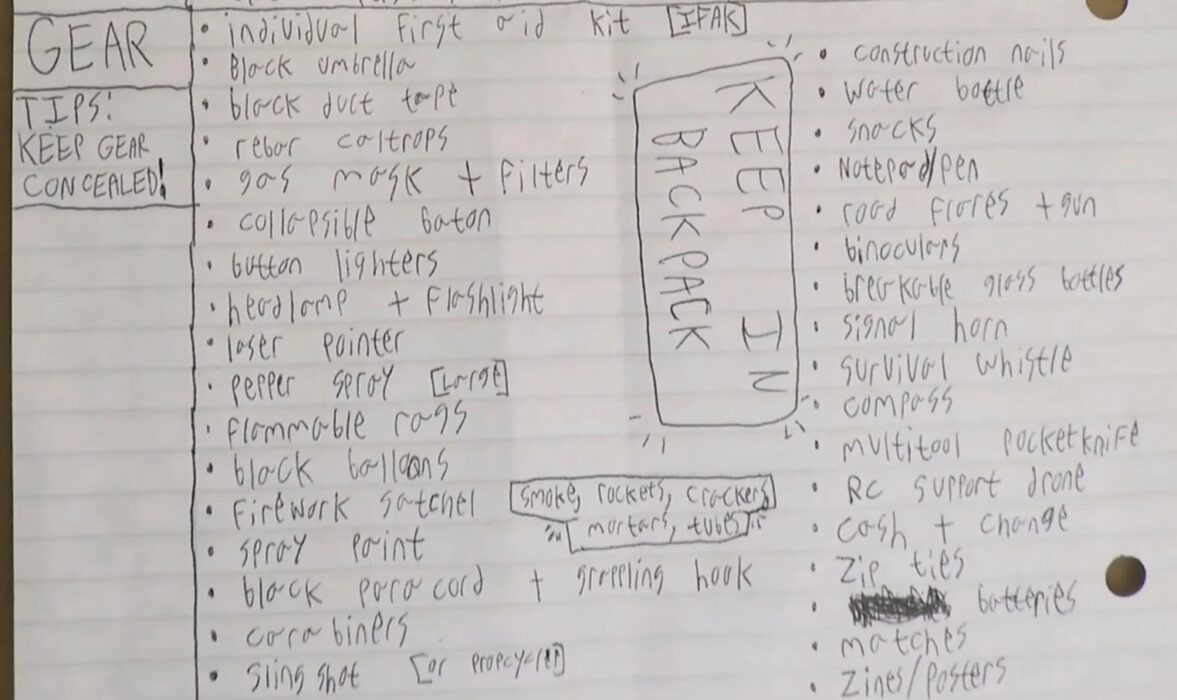 GEAR
TIPS:
KEEP GEAR
CONCEALED!
• individual first aid kit [IFAK]
• Black umbrella
• black duct tape
• rebar caltrops
• gas mask + filters
• collapsible baton
• button lighters
• headlamp + flashlight
• laser pointer
• pepper spray [Large]
• flammable rags
• black balloons
• Firework satchel [smoke, rockets, crackers
mortars, tubes]
• spray paint
• black paracord + grappling hook
• carabiners
• slingshot [or
KEEP IN
BACKPACK
• construction nails
• water bottle
• snacks
• Notepad/pen
• road flares + gun
• binoculars
• breakable glass bottles
• signal horn
• survival whistle
• compass
• multitool pocketknife
• RC support drone
• cash + change
• Zip ties
• batteries
• matches
• Zines/Posters